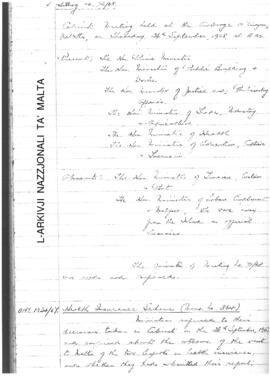 Sitting no. 70/68.
Cabinet Meeting held at the Auberge d'Aragon,
Valletta, on Thursday, 26th September, 1968, at 9 a.m.
Present: The Hon. Prime Minister
The Hon. Minister of Public Building &
Works
The Hon. Minister of Justice and Parliamentary
Affairs
The Hon. Minister of Trade, Industry
& Agriculture
The Hon. Minister of Health
The Hon. Minister of Education, Culture
& Tourism
Absent: The Hon. Minister of
The Hon. Minister of Labour, Employment
& Welfare, who were away
from the Island on official
business
The Minutes of Meeting No.
was read and approved.
L-ARKIVJI NAZZJONALI TA' MALTA
Health Insurance Scheme
Ministers referred to their
decision taken in Cabinet on the September, 1967
and enquired about the outcome of the visit
to Malta of the two experts in health insurance,
and whether they had submitted their report.